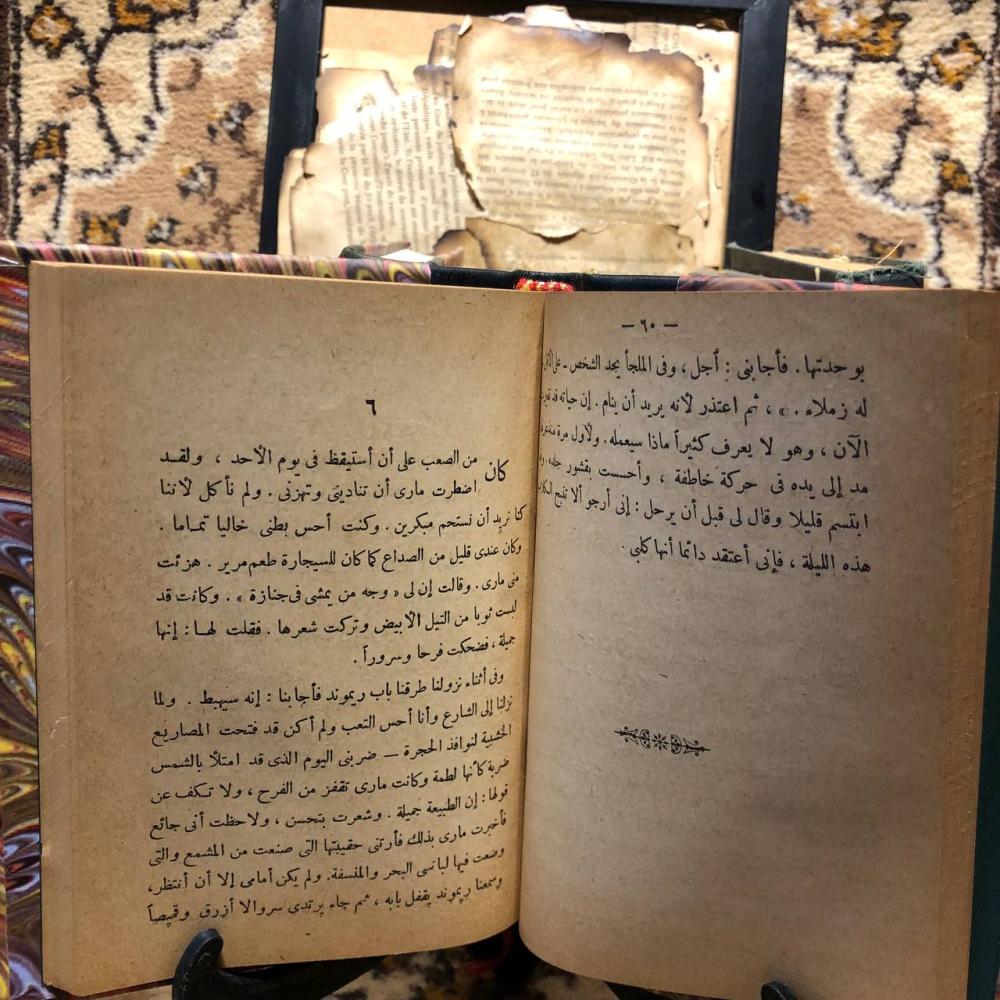 — ٦٠ —
بوحدتها . فأجابنى : أجل ، وفى الملجأ يجد الشخص ـ على
له زملاء . » ، ثم اعتذر لأنه يريد أن ينام . إن حياته قد
الآن ، وهو لا يعرف كثيراً ماذا سيعمله . ولأول مرة
مد إلى يده فى حركة خاطفة ، وأحسست بقشور جلده ،
ابتسم قليلا وقال لى قبل أن يرحل : إنى أرجو ألا تنبح الكلاب
هذه الليلة ، فإنى أعتقد دائما أنها كلبى .
٦
كان من الصعب على أن أستيقظ فى يوم الأحد ، ولقـد
اضطرت مارى أن تنادينى وتهزنى . ولم نأكل لأننا
كنا نريد أن نستحم مبكرين . وكنت أحس بطنى خاليا تمـاما .
وكان عندى قليل من الصداع كما كان للسيجارة طعم مرير . هزئت
منى مارى . وقالت إن لى « وجه من يمشى فى جنازة » . وكانت قد
لبست ثوبا من التيل الأبيض وتركت شعرها . فقلت لهـا : إنها
جميلة ، فضحكت فرحا وسروراً .
وفى أثناء نزولنا طرقنا باب ريموند فأجابنا : إنه سيهبط . ولما
نزلنا إلى الشارع وأنا أحس التعب ولم أكن قد فتحت المصاريع
الخشبية لنوافذ الحجرة — ضربنى اليوم الذى قد امتلأ بالشمس
ضربة كأنها لطمة وكانت مارى تقفز من الفرح ، ولا تـكف عن
قولها : إن الطبيعة جميلة . وشعرت بتحسن ، ولاحظت أنى جائع
فأخبرت مارى بذلك فأرتنى حقيبتها التى صنعت من المشمع والتى
وضعت فيها لباسى البحر والمنشفة . ولم يكن أمامى إلا أن أنتظر ،
وسمعنا ريموند يقفل بابه ، ثم جاء يرتدى سروالا أزرق وقميصاً